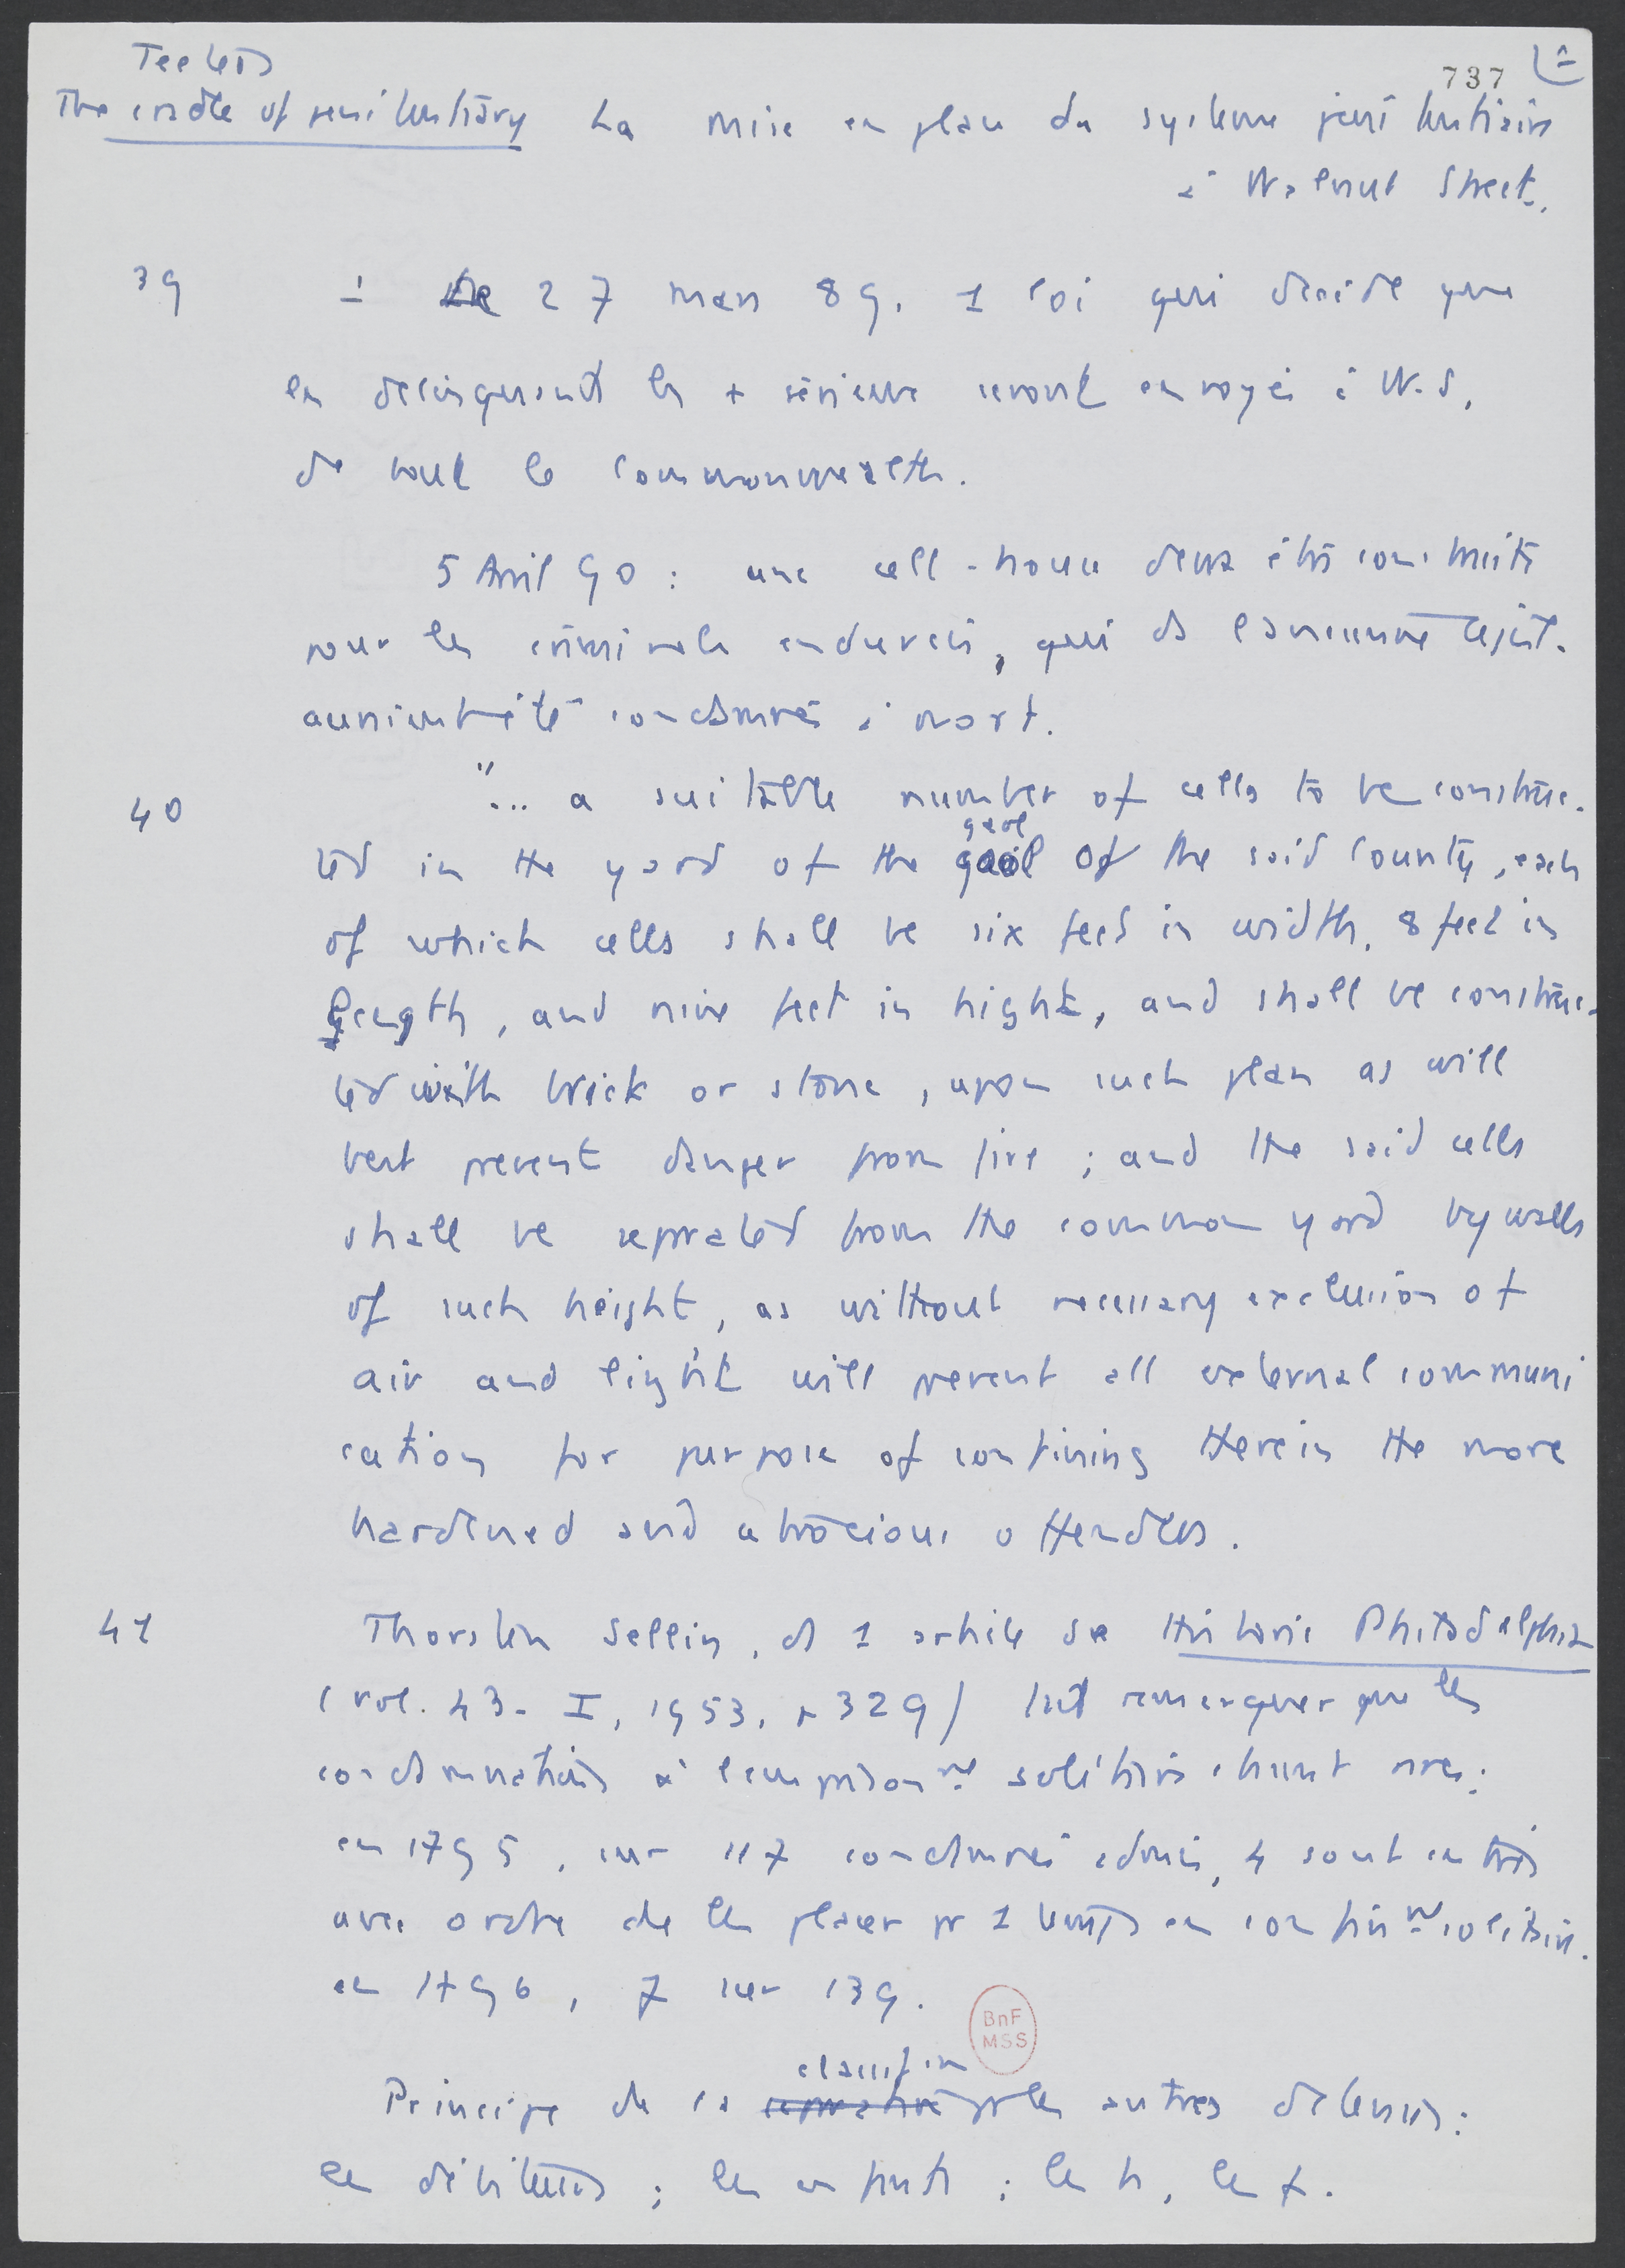 Teeters
737
The cradle of penitentiary La mise en place du systeme penitentiaire
à Walnut Street.
39 - 27 mars 89. 1 loi qui décide que
les délinquants les + sérieux seront envoyés à W.S.
de tout le Commonwealth.
5 Avril 90 : une cell-house devra être construite
pour les criminels endurcis, qui ds l'ancienne légist.
auraient été condamnés à mort.
40 "... a suitable number of cells to be construc-
ted in the yard of the gaol of the said County, each
of which cells shall be six feet in width, 8 feet in
length, and nine feet in hight, and shall be construc-
ted with brick or stone, upon such plan as will
best prevent danger from fire ; and the said cells
shall be seprated from the common yard by walls
of such height, as without necessary exclusion of
air and light will prevent all external communi
cation for purpose of confining therein the more
hardened and atrocious offenders.
41 Thorsten Sellin, ds 1 article de Historic Philadelphia
(vol. 43 - I, 1953, p 329) fait remarquer que les
condamnations à l'emprisonnt solitaire étaient rares :
en 1795, sur 117 condamnés admis, 4 sont entrés
avec ordre de les placer pr 1 temps en confint solitaire.
en 1796, 7 sur 139.
BnF
MSS
classifion
Principe de la separation pr les autres détenus :
les débiteurs ; les enfants ; les h, les f.